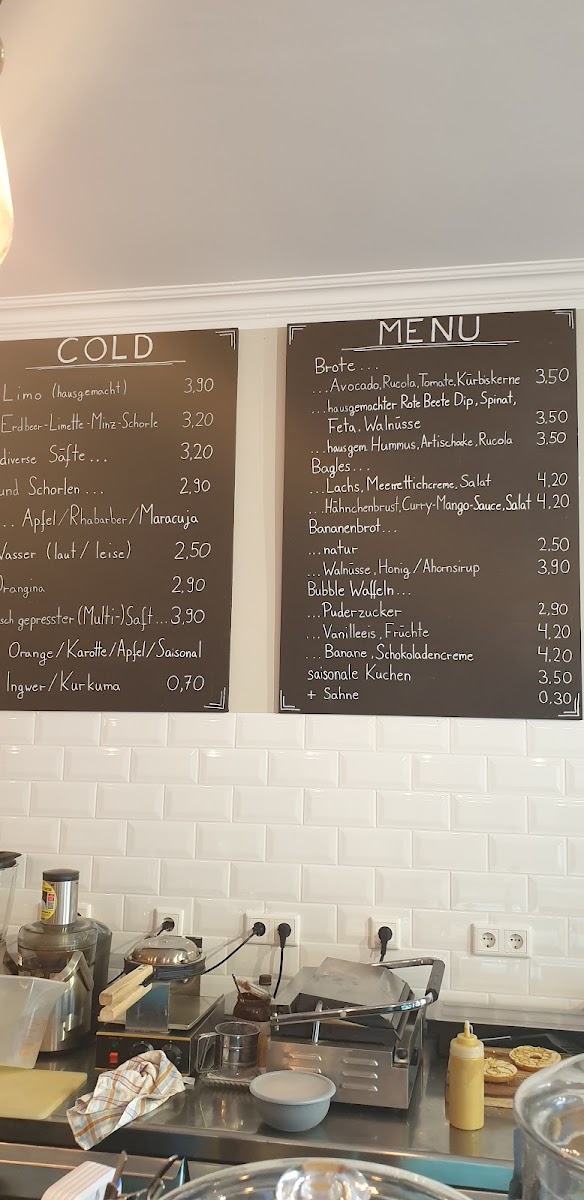 COLD
Limo (hausgemacht) 3,90
Erdbeer-Limette-Minz-Schorle 3,20
diverse Säfte... 3,20
und Schorlen... 2,90
... Apfel/Rhabarber/Maracuja
Wasser (laut/leise) 2,50
Orangina 2,90
sch gepresster (Multi-)Saft... 3,90
Orange/Karotte/Apfel/Saisonal
Ingwer/Kurkuma 0,70
MENU
Brote...
...Avocado, Rucola, Tomate, Kürbiskerne 3,50
...hausgemachter Rote Beete Dip, Spinat,
Feta, Walnüsse 3,50
...hausgem. Hummus, Artischoke, Rucola 3,50
Bagles...
...Lachs, Meerrettichcreme, Salat 4,20
...Hähnchenbrust, Curry-Mango-Sauce, Salat 4,20
Bananenbrot...
...natur 2,50
...Walnüsse, Honig/Ahornsirup 3,90
Bubble Waffeln...
...Puderzucker 2,90
...Vanilleeis, Früchte 4,20
...Banane, Schokoladencreme 4,20
saisonale Kuchen 3,50
+ Sahne 0,30